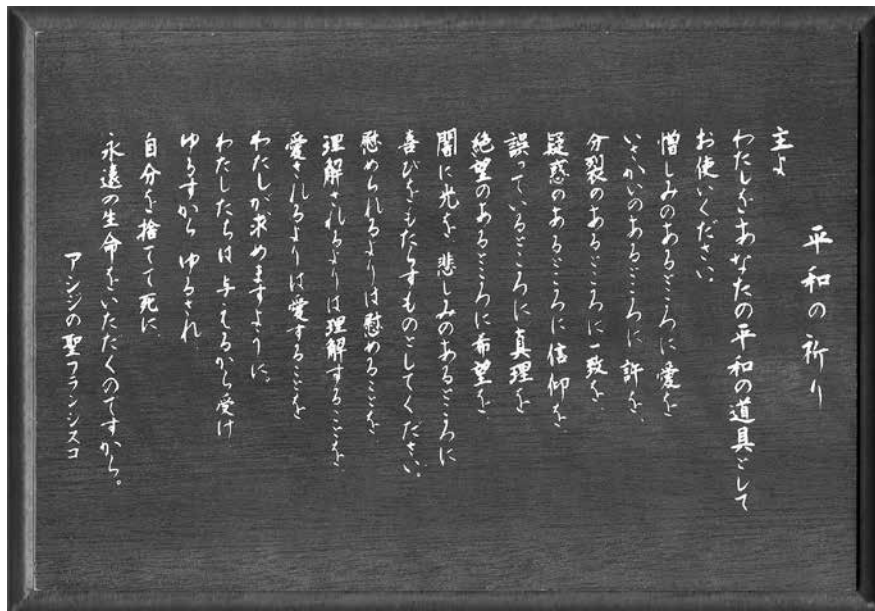 平和の祈り
主よ
わたしをあなたの平和の道具として
お使いください。
憎しみのあるところに愛を
いさかいのあるところに許を、
分裂のあるところに一致を、
疑惑のあるところに信仰を、
誤っているところに真理を
絶望のあるところに希望を
闇に光を、悲しみのあるところに
喜びをもたらすものとしてください。
慰められるよりは慰めることを、
理解されるよりは理解することを、
愛されるよりは愛することを
わたしが求めますように。
わたしたちは与えるから受け
ゆるすからゆるされ
自分を捨てて死に
永遠の生命をいただくのですから。
アシジの聖フランシスコ